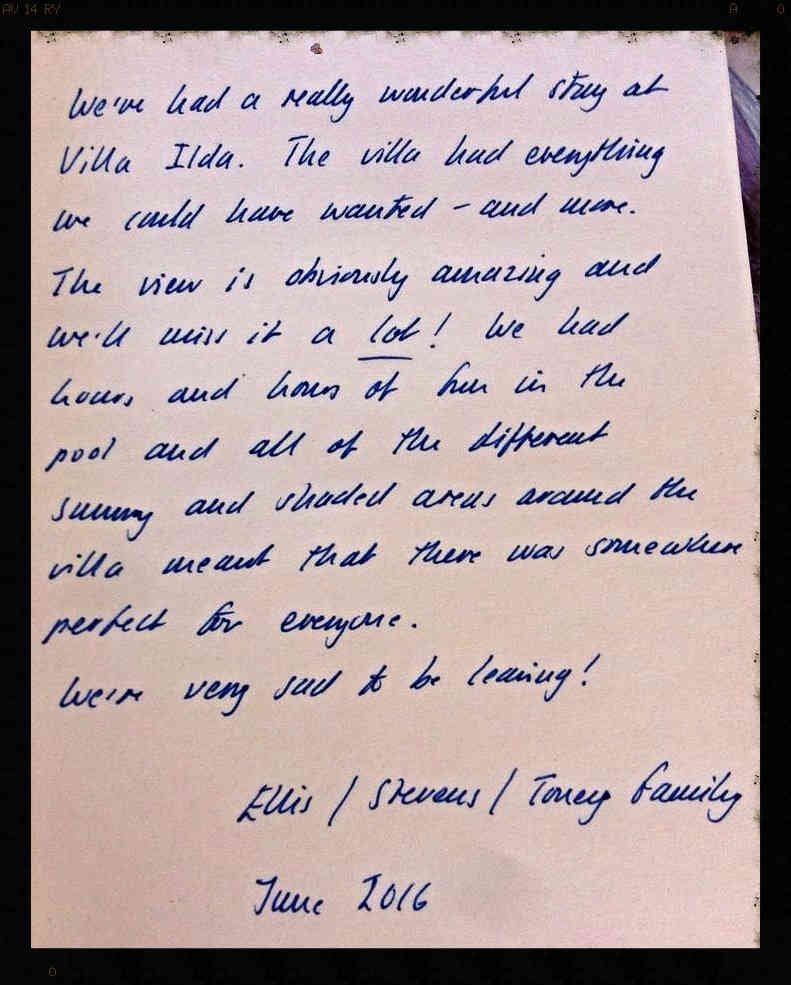 We've had a really wonderful stay at
Villa Ilda. The villa had everything
we could have wanted – and more.
The view is obviously amazing and
we'll miss it a lot! We had
hours and hours of fun in the
pool and all of the different
sunny and shaded areas around the
villa meant that there was somewhere
perfect for everyone.
We're very sad to be leaving!
Ellis / Stevens / family
June 2016